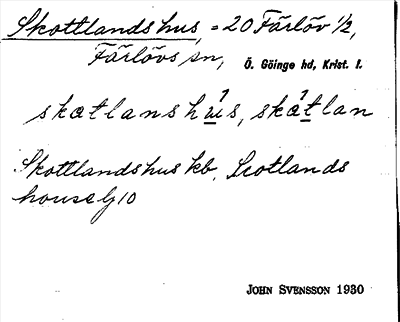 Skottlandshus, = 20 Färlöv 1/2,
Färlövs sn, Ö. Göinge hd, Krist. l.
skatlanshus, skatlan
Skottlandshus kb, Scotlands
house GJ10
JOHN SVENSSON 1930